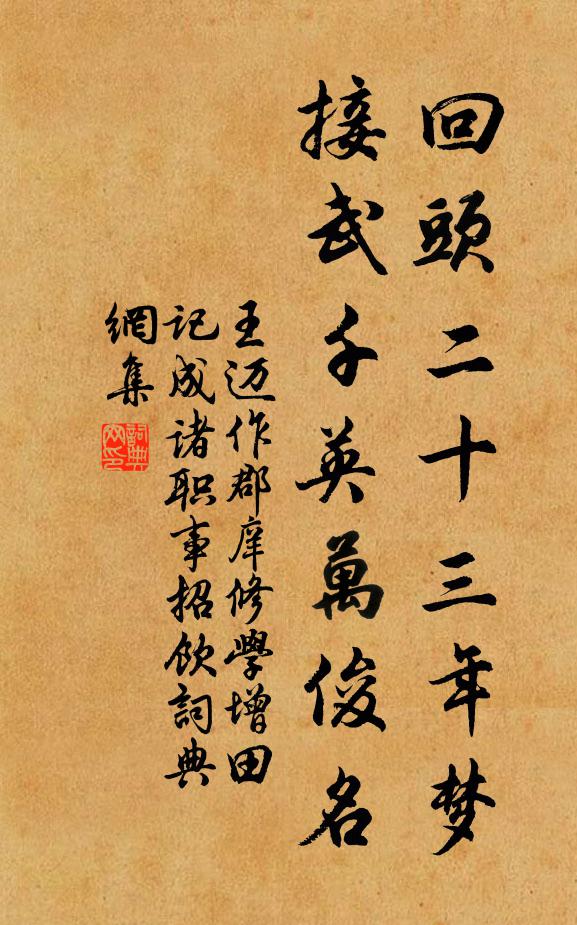 回頭二十三年梦
接武千英萬俊名
王迈作郡庠修學增田
记成诸职事招飲詞典
網集
詞典
网印